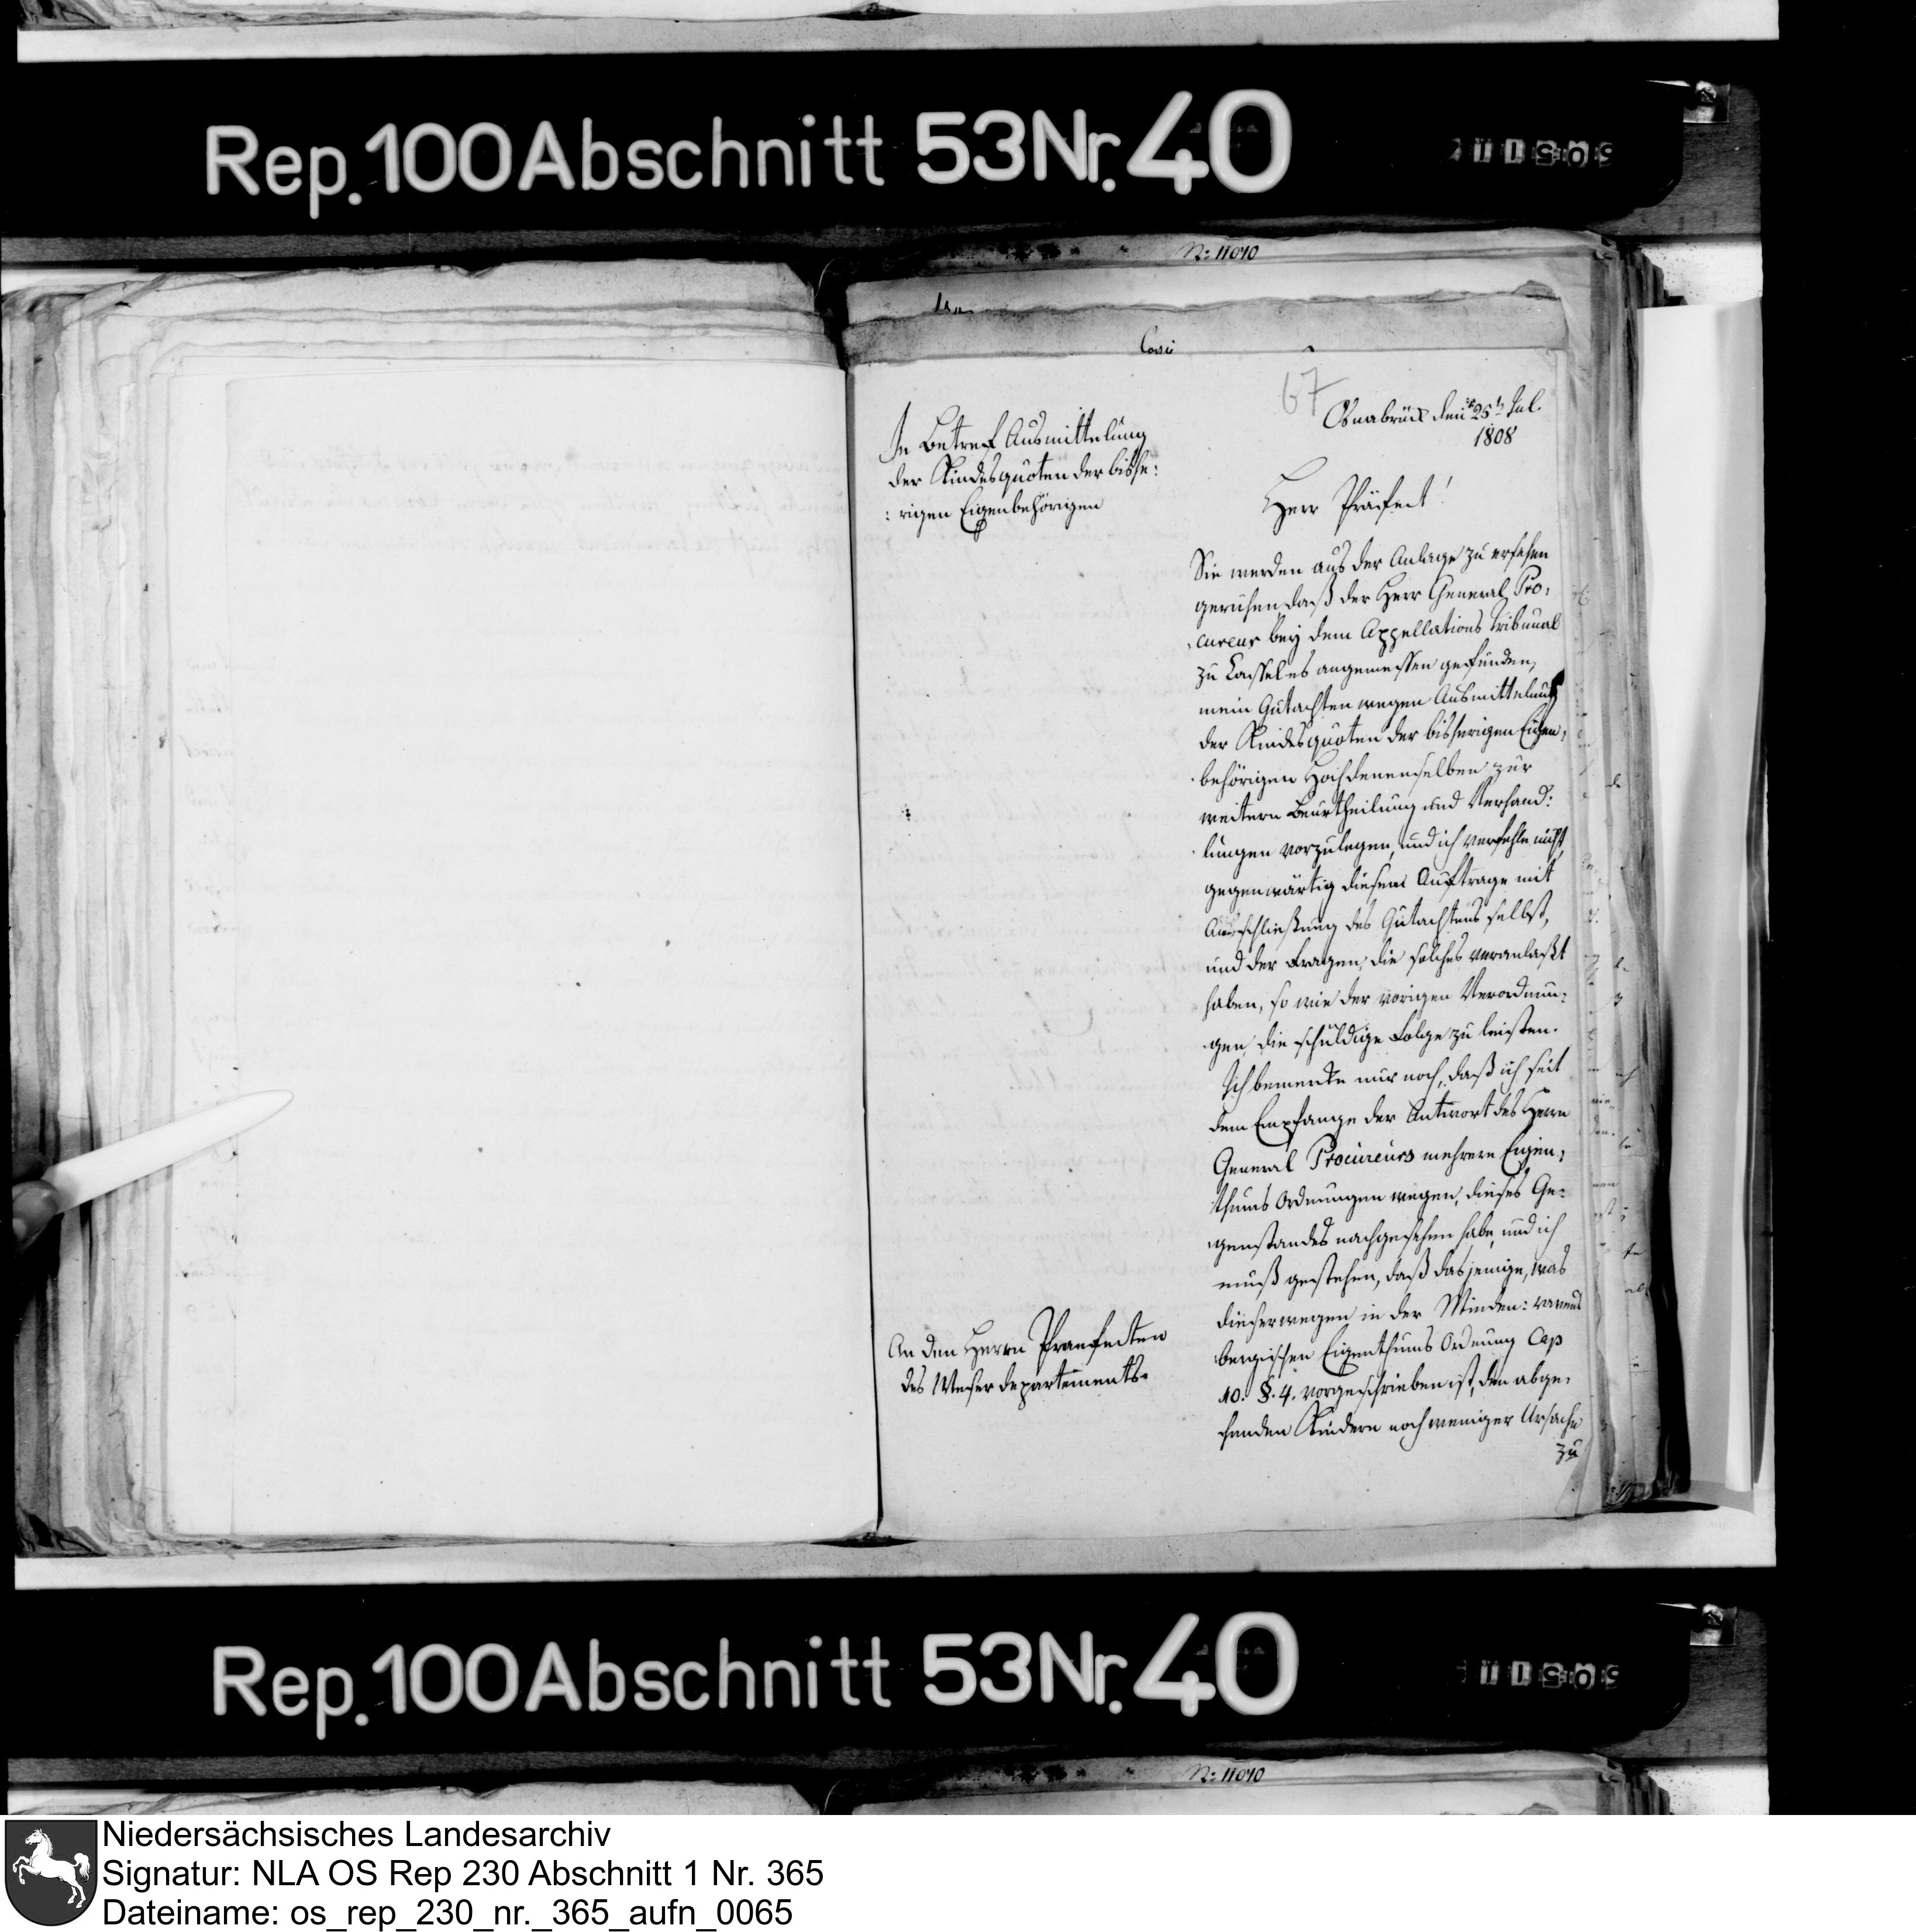 Rep. 100 Abschnitt 53 Nr. 40
N: 11010
67
Osnabrück den 25t Jul.
1808
In Betref Ausmittelung
der Kindesquoten der bishe:
: rigen Eigenbehörigen
Herr Präfect!
Sie werden aus der Anlage zu ersehen
geruhen, daß der Herr General Pro,
cureur bey dem Appellations Tribunal
zu Cassel es angemessen gefunden,
mein Gutachten wegen Ausmittelung
der Kindesquoten der bisherigen Eigen,
behörigen Hochdenenselben zur
weitern Beurtheilung und Verhand:
lungen vorzulegen, und ich verfehle nicht,
gegenwärtig diesem Auftrage mit
Anschließung des Gutachtens selbst,
und der Fragen, die solches veranlaßt
haben, so wie der vorigen Verordnun:
gen, die schuldige Folge zu leisten.
Ich bemerke nur noch, daß ich seit
dem Empfange der Antwort des Herrn
General Procureurs mehrere Eigen,
thums Ordnungen wegen dieses Ge:
genstandes nachgesehen habe, und ich
muß gestehen, daß dasjenige, was
dieserwegen in der Minden: ravens
bergischen Eigenthums Ordnung Cap
10. §. 4. vorgeschrieben ist, den abge,
henden Kindern noch weniger Ursache
zu
An den Herrn Praefecten
des Weserdepartements.
Rep. 100 Abschnitt 53 Nr. 40
N: 11010
Niedersächsisches Landesarchiv
Signatur: NLA OS Rep 230 Abschnitt 1 Nr. 365
Dateiname: os_rep_230_nr._365_aufn_0065